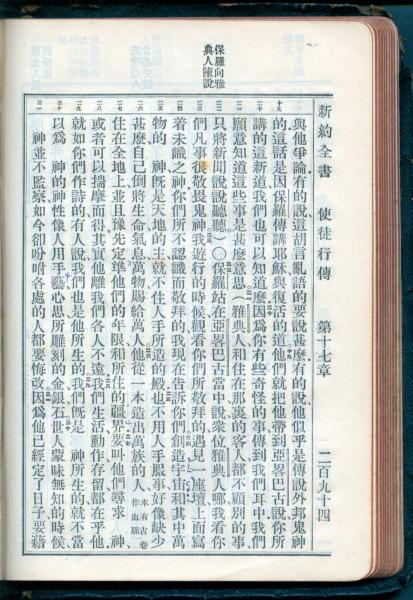 新約全書　使徒行傳　第十七章　二百九十四
保羅向雅
典人陳說
與他爭論有的說這胡言亂語的要說甚麼有的說他似乎是傳說外邦鬼神
的這話是因保羅傳講耶穌與復活的道他們就把他帶到亞畧巴古說你所
講的這新道我們也可以知道麼因爲你有些奇怪的事傳到我們耳中我們
願意知道這些事是甚麼意思（雅典人和住在那裏的客人都不顧別的事
只將新聞說說聽聽）〇保羅站在亞畧巴古當中說衆位雅典人哪我看你
們凡事很敬畏鬼神我遊行的時候觀看你們所敬拜的遇見一座壇上面寫
着未識之神你們所不認識而敬拜的我現在告訴你們創造宇宙和其中萬
物的　神旣是天地的主就不住人手所造的殿也不用人手服事好像缺少
甚麼自己倒將生命氣息萬物賜給萬人他從一本造出萬族的人本有古卷作血脈
住在全地上並且豫先定準他們的年限和所住的疆界要叫他們尋求　神
或者可以揣摩而得其實他離我們各人不遠我們生活動作存留都在乎他
就如你們作詩的有人說我們也是他所生的我們旣是　神所生的就不當
以爲　神的神性像人用手藝心思所雕刻的金銀石世人蒙昧無知的時候
神並不監察如今卻吩咐各處的人都要悔改因爲他已經定了日子要藉